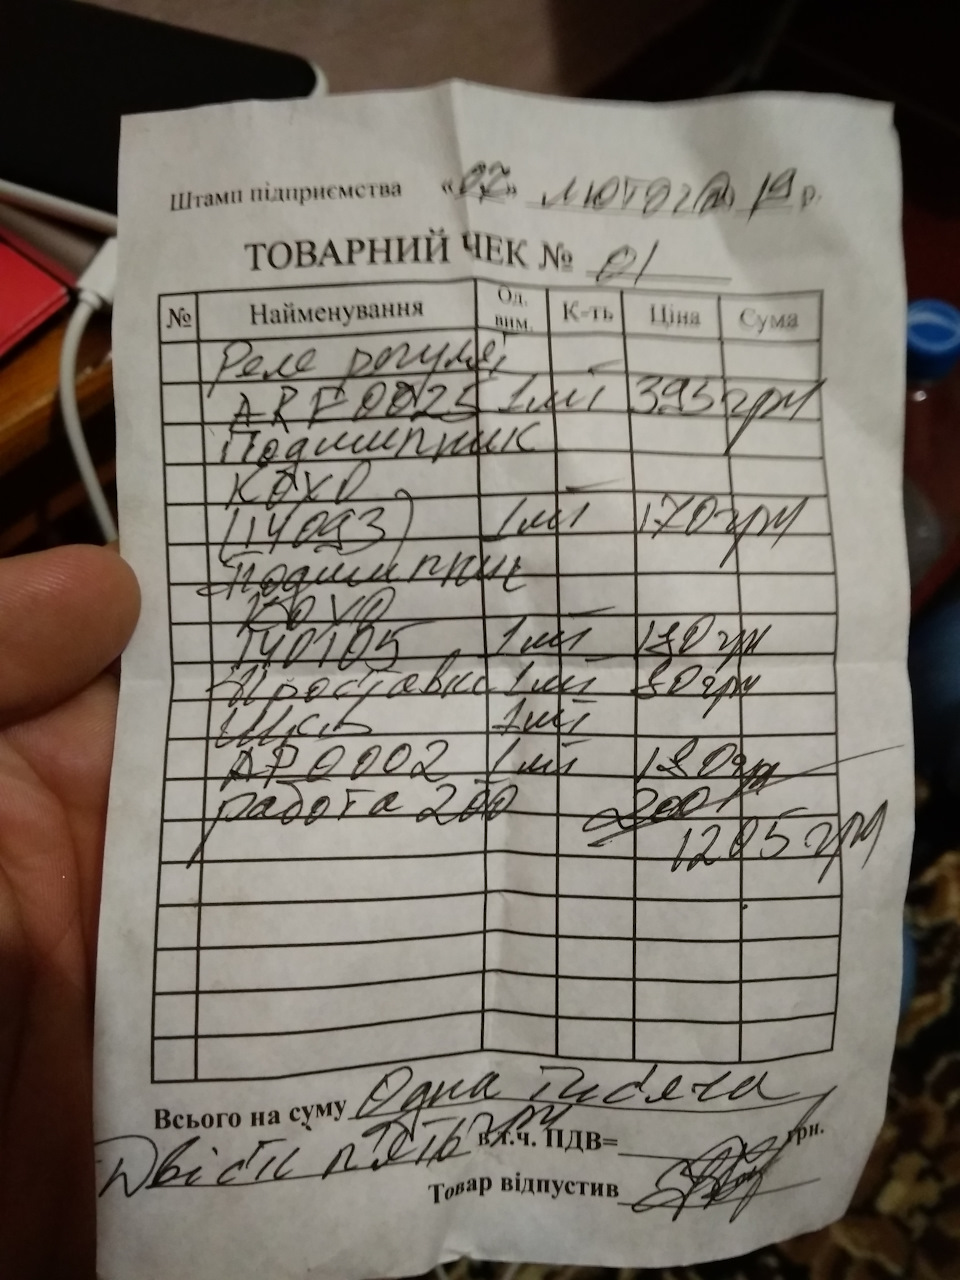 Штамп підприємства «02» лютого 19 р.
ТОВАРНИЙ ЧЕК № 01
№ Найменування Од. вим. К-ть Ціна Сума
Реле регулят
ARE0025 1шт 395грн
Подшипник
KOYO
(14093) 1шт 170грн
Подшипник
KOYO
140105 1шт грн
Проставка 1шт грн
1шт
AP0002 1шт грн
работа 200 200
1205 грн
Всього на суму Одна тисяча
Двісти пять грн в.т.ч. ПДВ= грн.
Товар відпустив